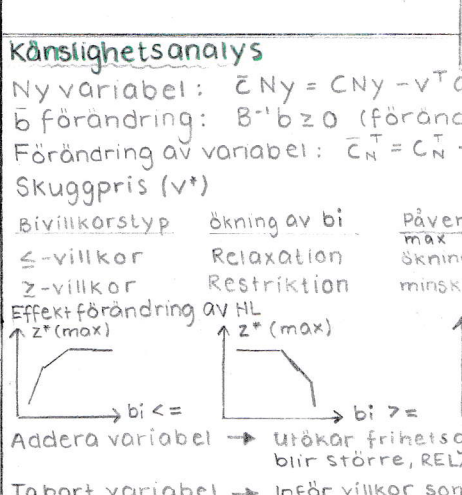 Känslighetsanalys
Ny variabel: c̄Ny = CNy - vᵀ
b̄ förändring: B⁻¹b ≥ 0 (föränd
Förändring av variabel: c̄ᵀN = CᵀN -
Skuggpris (v*)
Bivillkorstyp ökning av bi Påver
max
≤-villkor Relaxation ökning
≥-villkor Restriktion minsk
Effekt förändring av HL
z* (max) z* (max)
bi <= bi >=
Addera variabel → utökar frihetsg
blir större, REL
Ta bort variabel → Inför villkor som